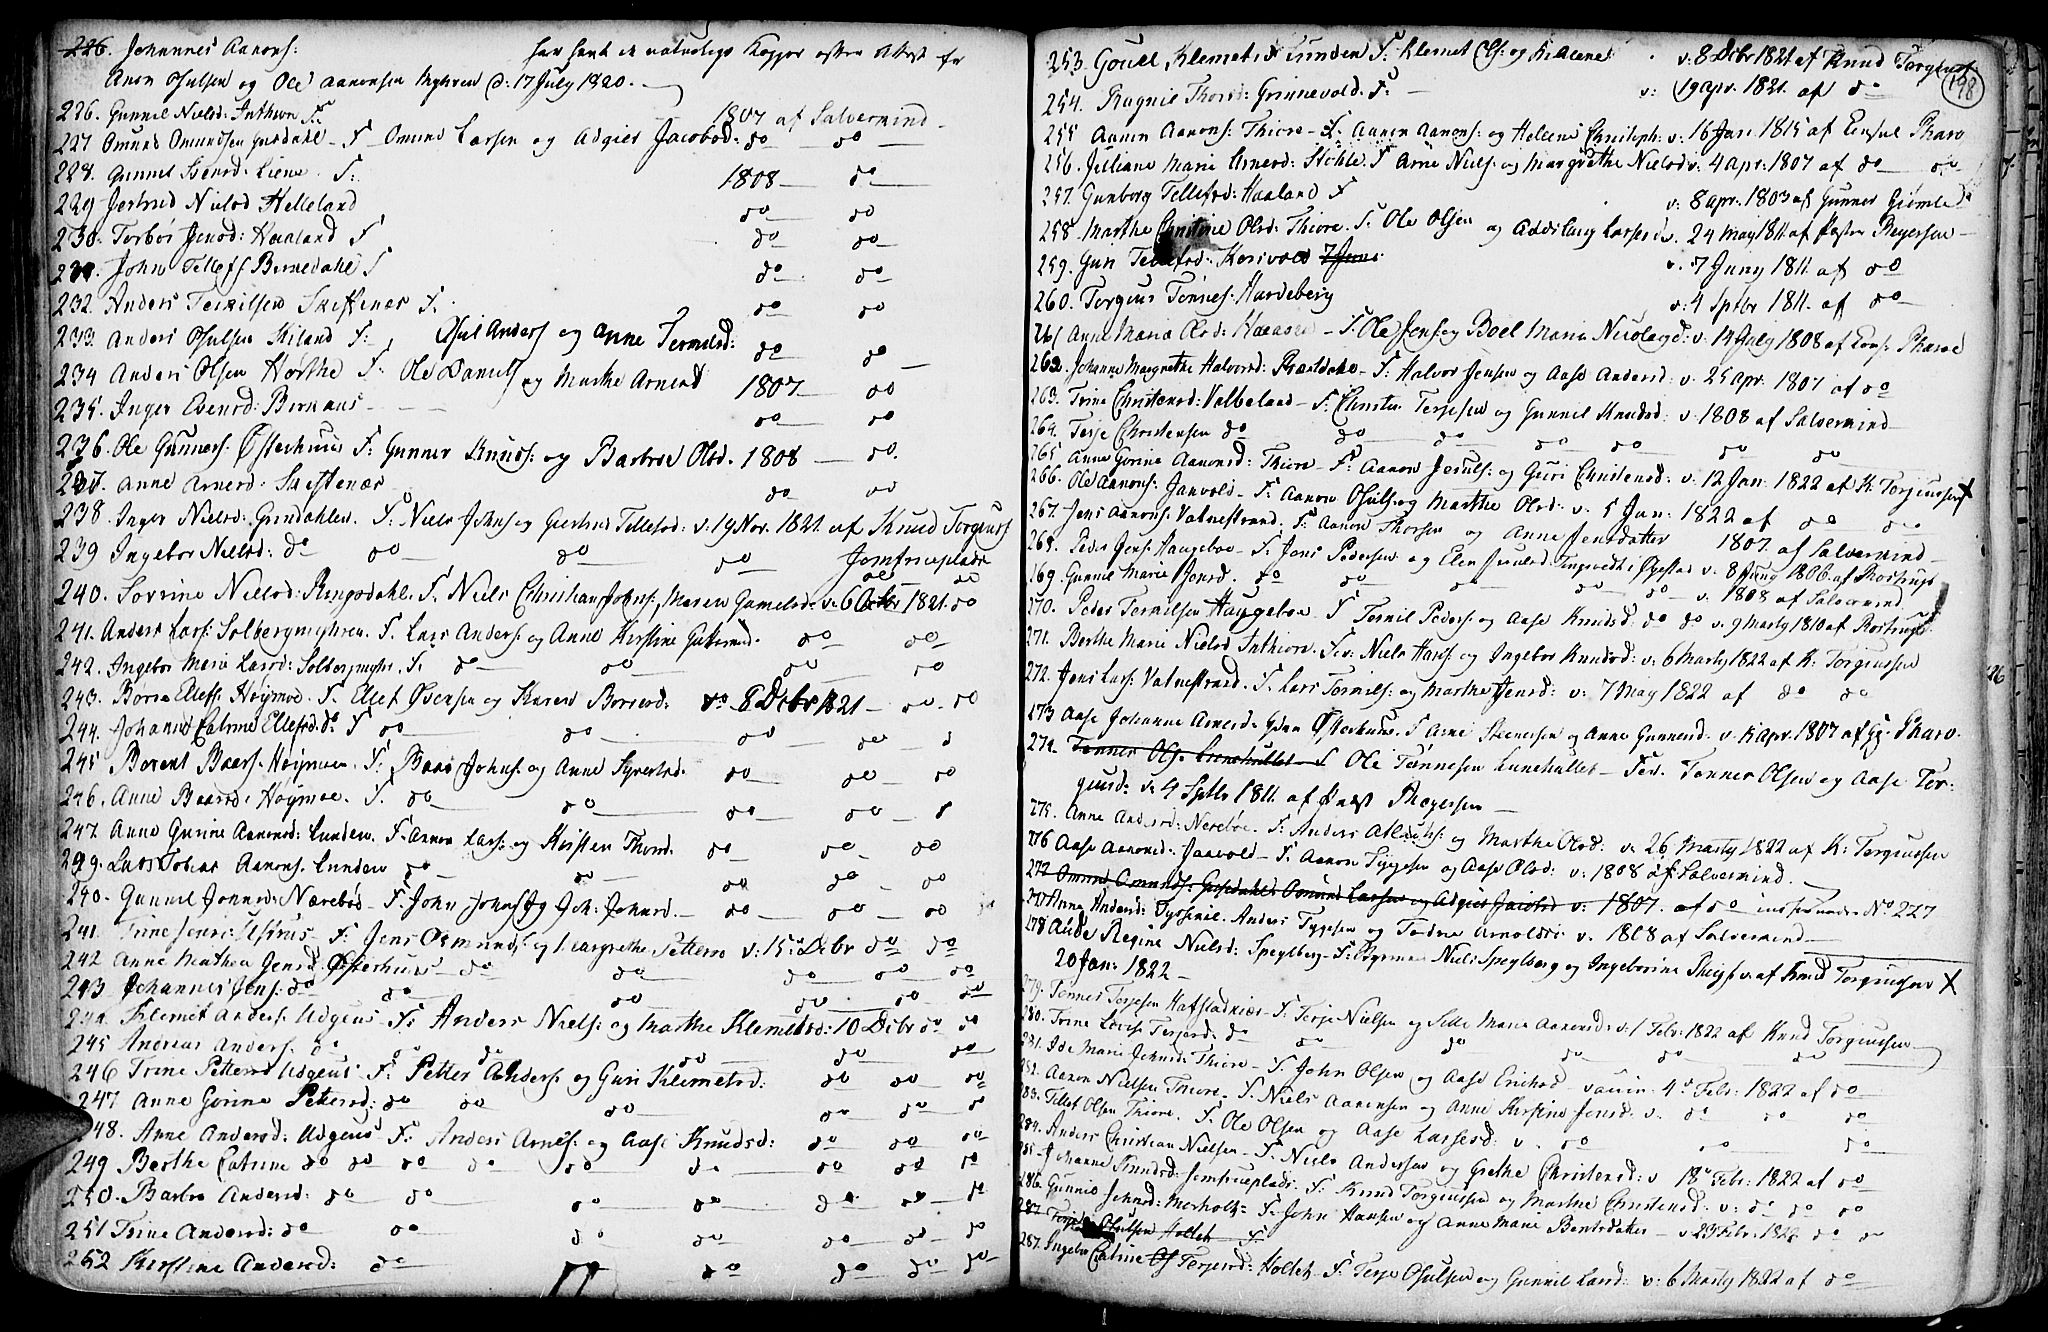 226. Johannes Aarons: har havt de naturlige Kopper efter Attest fra
Aron Osulsen og Ole Aaronsen Myhren d: 17 July 1820.
226. Gunnil Nielsd: Inthiore F: 1807 af Salvermind
227 Omund Omundsen Gusedahl - F Omund Larsen og Adgier Jacobsd: do do
228. Gunnil Isensd: Liene. F: 1808 do
229 Jertrud Nielsd Helleland do do
230. Torbor Jensd: Haaland F do do
231. John Tellefs Birkedahl F do do
232. Anders Terkilsen Skeftenær F. do do
233. Anders Osulsen Kiland F: Osul Anders og Anne Termelsd: do do
234 Anders Olsen Hørthe F: Ole Daniels og Marthe Arnesd 1807 do
235. Inger Evensd: Birknus do do
236. Ole Gunners: Østerhuus F: Gunner Knuds: og Barbroe Olsd. 1808 do.
237. Anne Arnesd: Skeftenær do do
238. Inger Nielsd: Grindahlen. F: Niels Johns: og Giertrud Tellefsd: v: 19 Nov. 1821. af Knud Torgiuss
239 Ingebor Nielsd: do do do do Jomfrueplads
240. Sovrine Nielsd: Ringsdahl. F. Niels Christian Johns, Maren Gamelsd. v: 6 Octbr 1821. do do
241. Anders Lars: Solbergmyhren. F. Lars Anders: og Anne Kirstine do do
242. Ingebor Maria Larsd: Solbergmyhr. F: do do do do
243. Børre Ellefs Høymoe. F. Ellef Osensen og Karen Børresd. v: 8 Debr 1821 do do
244. Johanne Catrine Ellefsd. do F do do do do
245 Berent Baars: Høymoe. F: Baar Johns: og Anne Syvertsd. do do do
246. Anne Baarsd: Høymoe. F. do do do do
247. Anne Gurine Aaronsd: Lunden. F. Aaron Lars: og Kirsten Thorsd. do do do
249. Lars Tobias Aarons: Lunden do do do do do
240. Gunnil Jonnesd: Nærebøe - F. John Johns og Joh: Johnsd. do do do do
241. Trine Jensd: Usterus F: Jens Osmunds: og Margrethe Petters v: 15 Debr do do
242 Anne Mathea Jensd Østerhuus do do do do do
243 Johannes Jens: do do do do do do
244. Klemet Anders: Udgeus F: Anders Niels: og Marthe Klemetsd: 10 Debr do do
245 Andreas Anders: do do do do do do
246 Trine Pettersd Udgeus F: Petter Anders: og Guri Klemetsd: do do do
247 Anne Gorine Pettersd: do do do do do do
248. Anne Andersd: Udgeus F: Anders Arnes: og Aase Knudsd: do do do
249 Berthe Catrine do do do do do do do do do
250. Barbro Andersd: do do do do do do do
251 Trine Andersd: do do do do do do do
252 Kirstine Andersd: do do do do do
198
253. Gouell Klemets Lunden F: Klemet Ols: og Kirstene v: 8 Debr 1821 af Knud Torgiuss
254. Ragnil Thorsd: Grinnevold. F: v: 19 apr. 1821. af do
255 Aaron Aarons: Thiore - F. Aaron Aarons: og Hellene Christoph: v: 16 Jan. 1815 af Pharo
256. Jilliane Marie Arnesd: Stohle. F Arne Niels: og Margrethe Nielsd v: 4 apr: 1807 af do do
257. Gunborg Tellefsd: Haaland F v: 8 apr: 1803 af Gunner Giomle
258. Marthe Christine Olsd: Thiore. F. Ole Olsen og Addelaug Larsesd v. 24 May 1811 af Pastor Reyersen
259. Guri Tellefsd: Korsvold 7 Juni v. 7 Juny 1811. af do
260. Torgius Tonnes: Hardeberg v: 4 Sptbr 1811. af do
261 Anne Maria Olsd: Haaaae - F. Ole Jens og Boel Maria Nicolayd: v: 14 July 1808 af Pharoe
262. Johanne Margrethe Halvorsd: - F. Halvor Jensen og Aase Andersd: v: 25 apr: 1807 af do
263. Trine Christensd: Valbeland - F: Christen Terjesen og Gunnil Knudsd: v: 1808 af Salvermind
264. Terje Christensen do do do do do do
265 Anne Gorine Aaronsd: Thiore - F: Aaron Jesuls: og Guri Christensd: v: 12 Jan: 1822 af K: Torgiussen X
266. Ole Aarons: Jaavold - F. Aaron Osuls: og Marthe Olsd: v: 5 Jan: 1822 af do do
267. Jens Aarons: Vatnestrand. F: Aaron Thorsen og Anne Jensdatter 1807. af Salvermind
268. Peder Jens: Haugeboe - F. Jens Pedersen og Elen Jensd: Tingvedt i Øyestad v: 8 Juny 1806. af Rostrup
269. Gunnil Marie Jensd. do do do do do v: 1808 af Salvermind.
270. Peder Termilsen Haugeboe F Termil Peders: og Aase Knudsd: do do v: 9 Marty 1810 af Rostrup
271. Berthe Marie Nielsd Inthiore. F. v. Niels Hans: og Ingebor Knudsd: v: 6 Marty 1822 af K: Torgiussen
272. Jens Lars: Vatnestrand. F. Lars Termils: og Marthe Jensd: v: 7 May 1822 af do do
273 Aase Johanne Arnesd: Østerhuus. F Arne Steenersen og Anne Gunnersd. v: 15 apr. 1807 af Pharo.
274. Tønner Ols: Lienehullet F Ole Tønnesen Lunehullet - Før. Tønner Olsen og Aase Tor-
giusd: v: 4 Sptbr 1811. af Præst Reyersen
275. Anne Andersd: Nerebøe. F: Anders Atlaks: og Marthe Olsd: v: 26 Marty 1822 af K: Torgiussen
276 Aase Aaronsd: Jaavold - F: Aaron Tygesen og Aase Olsd: v: 1808 af Salvermind.
277 Omund Omunds: Gusedahl: Omund Larsen og Adgier Jacobsd v: 1807. af do indført under No 227
277 Anne Andersd: Anders Tygesen og Tordne Arnoldsd: v. 1808 af Salvermind
278 Aude Regine Nielsd: Speylberg - F: Niels Speylberg og Ingeborine v. af Knud Torgiussen X
20 Jan: 1822 -
279. Tønnes Terjesen Hafstadniæs - F: Terje Nielsen og Sille Marie Aaronsd: v: 1 Febr: 1822 af Knud Torgiussen
280. Trine Lovise Terjesd: do do do do do do
281. Ide Marie Johnsd: Thiore - F. John Olsen og Aase Erichsd - vaccin: 4 Febr: 1822 af do
282. Aaron Nielsen Thiore. F. Niels Aaronsen og Anne Kirstine Jensd: v: do do do
283. Tellef Olsen Thiore. F. Ole Olsen og Aase Larsesd: v. do do do
284. Anders Christian Nielsen - F. Niels Andersen og Grethe Christensd: v 18 Febr: 1822 af do
285. Johanne Knudsd: Jomfrueplads: F: Knud Torgiussen og Marthe Christensd: v: do do do
286. Gunnio Johnsd: Morholt F. John Hansen og Anne Marie Berntsdatter v 23 Febr: 1822 do do
287. Terje Osulsen Holtet F
287. Ingebor Catrine Terjesd: Holtet F. Terje Osulsen og Gunnil Larsd: v: 6 Marty 1822 af do